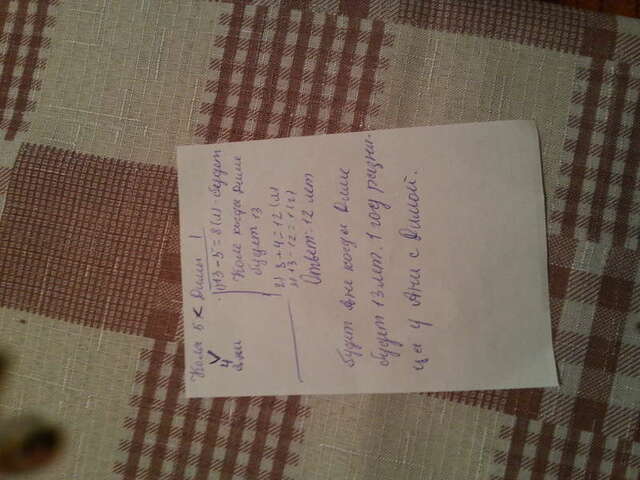 Коля 5 < Димы
4
Ани
1) 13 - 5 = 8 (л) - будет
Коле когда Диме
будет 13
2) 8 + 4 = 12 (л)
3) 13 - 12 = 1 (г)
Ответ: 12 лет
будет Ане когда Диме
будет 13 лет. 1 год разни-
ца у Ани с Димой.